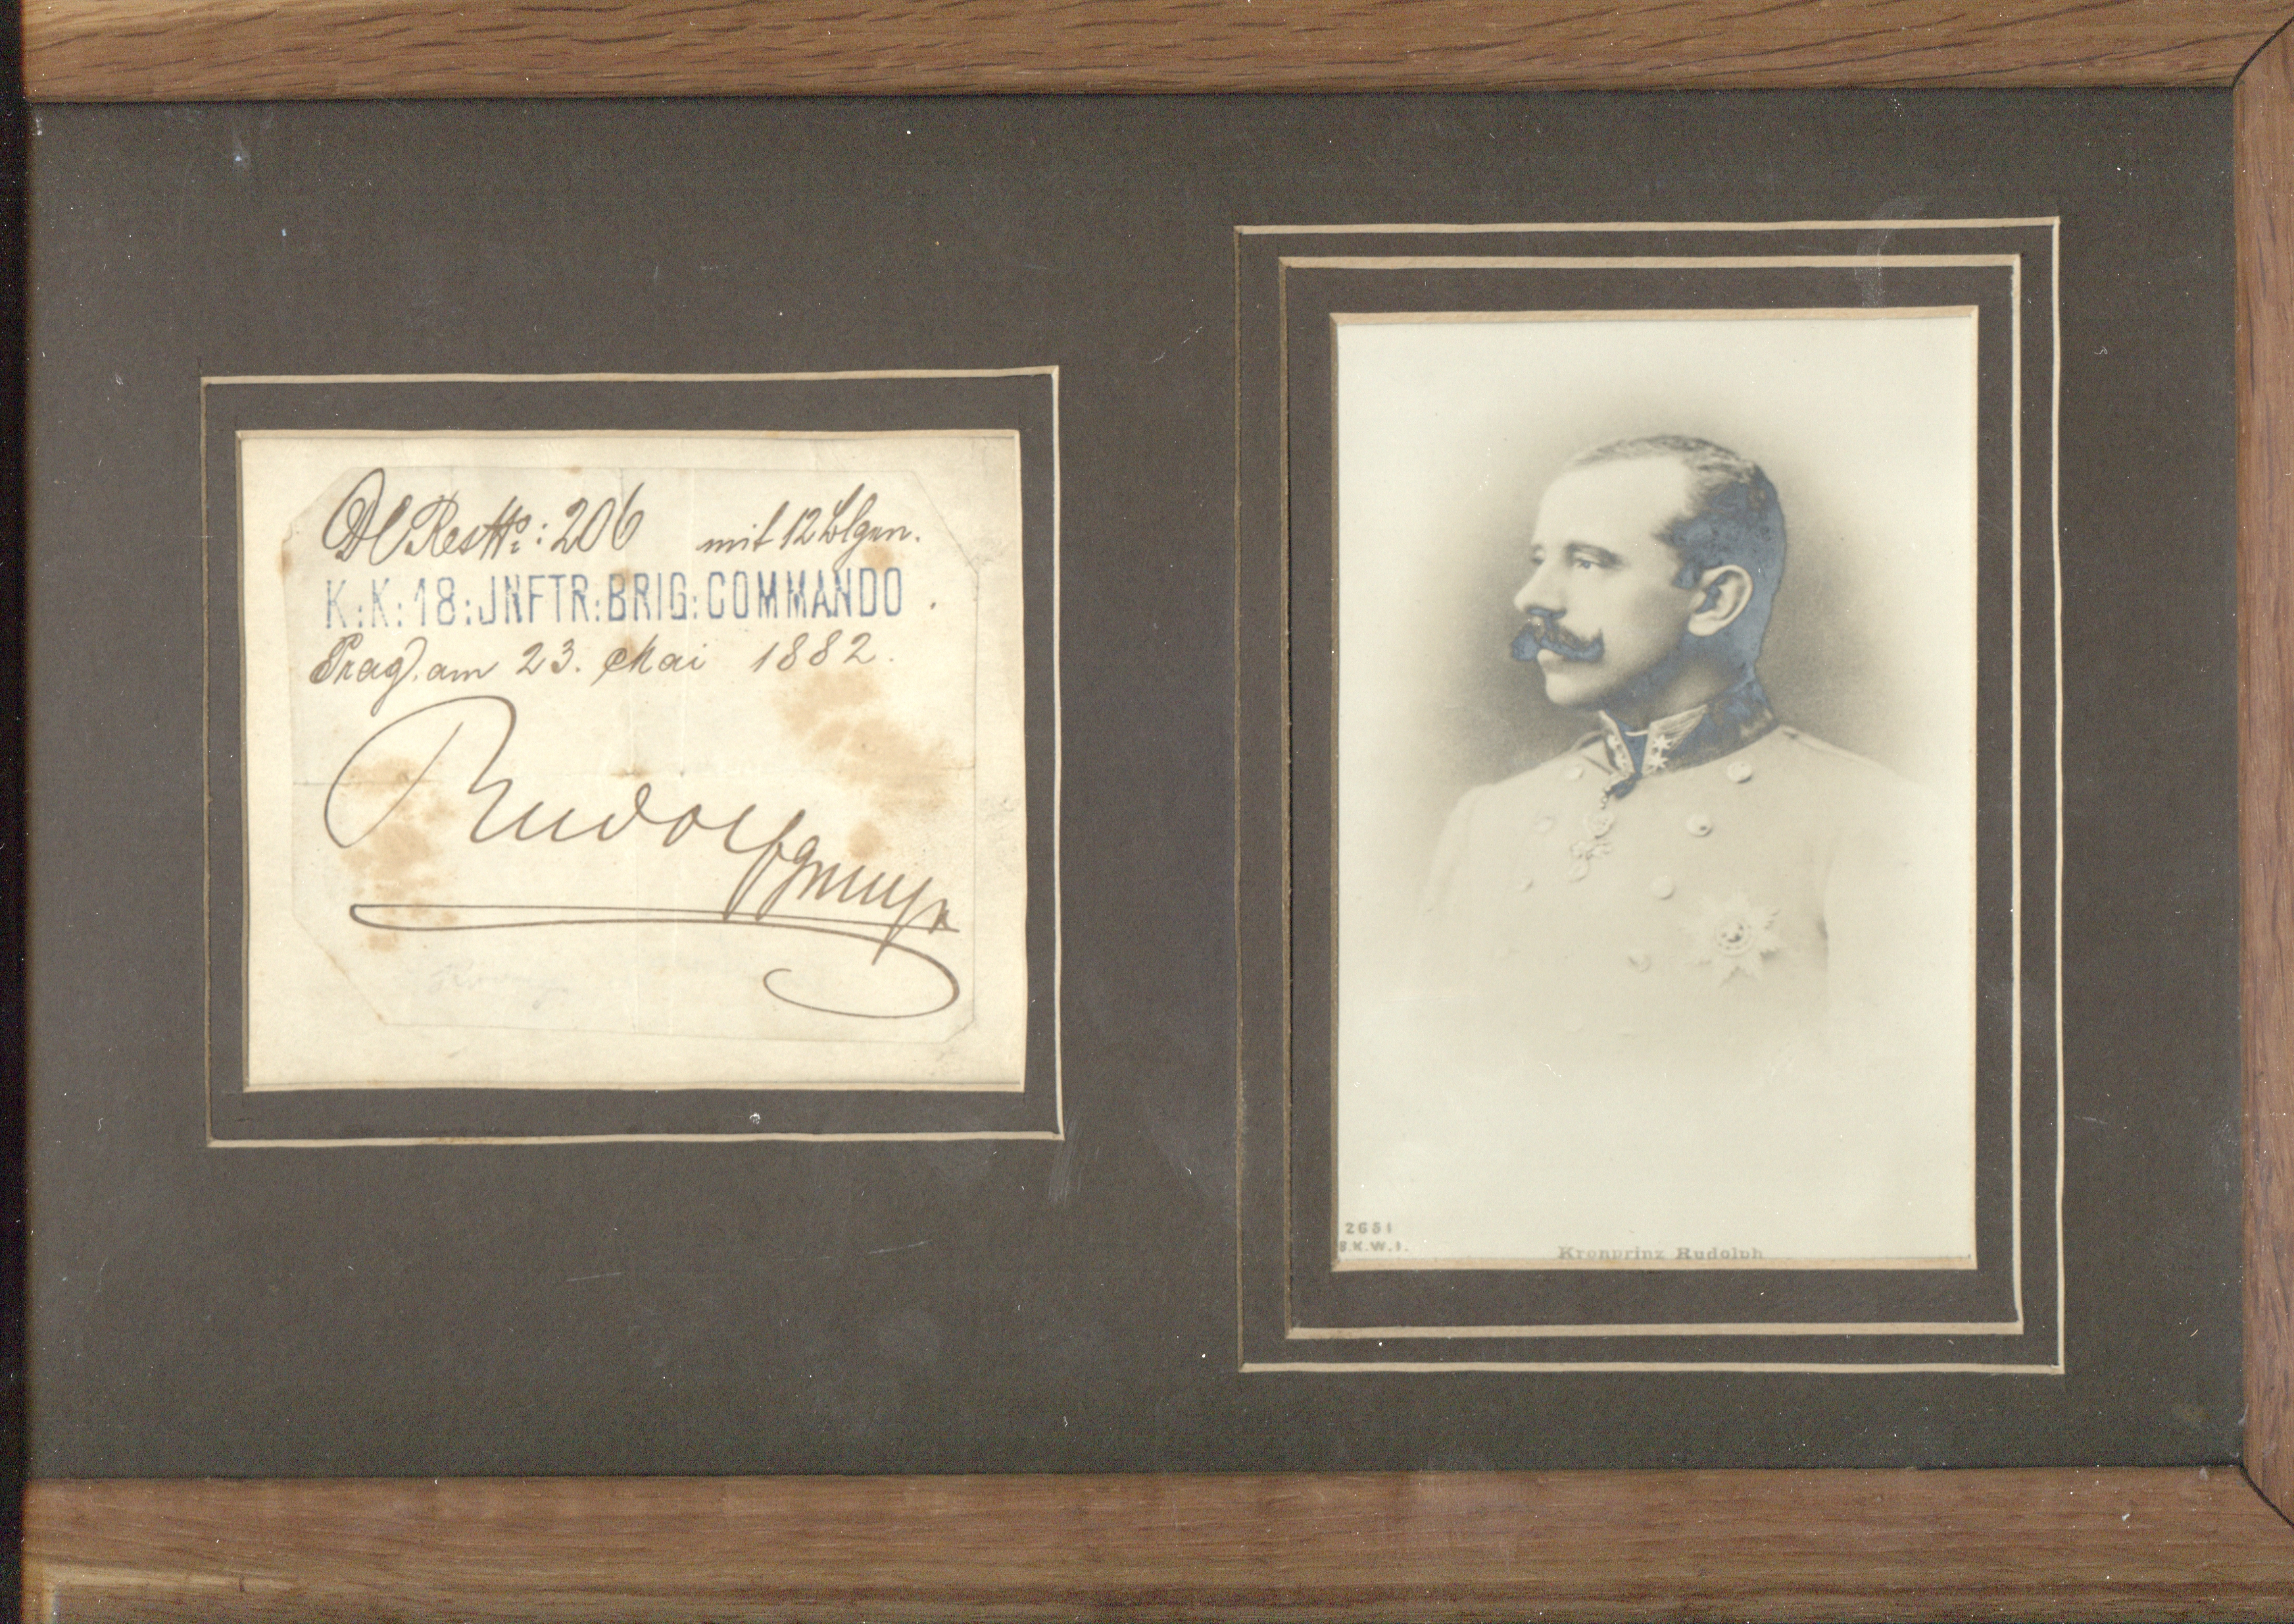 Res№: 206 mit 12 Blgen.
K:K:18:JNFTR:BRIG:COMMANDO
Prag, am 23. Mai 1882.
Rudolf
2651
B.K.W.I.
Kronprinz Rudolph